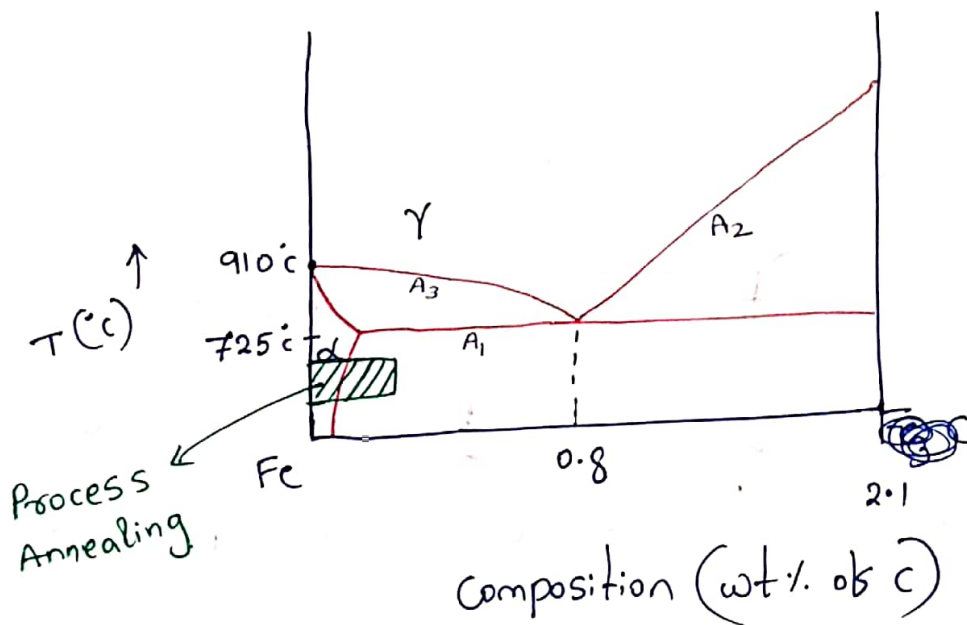 γ
A2
910°c
A3
T (°c) ↑
725°c
α
A1
Fe
0.8
2.1
Process
Annealing
Composition (wt% of c)